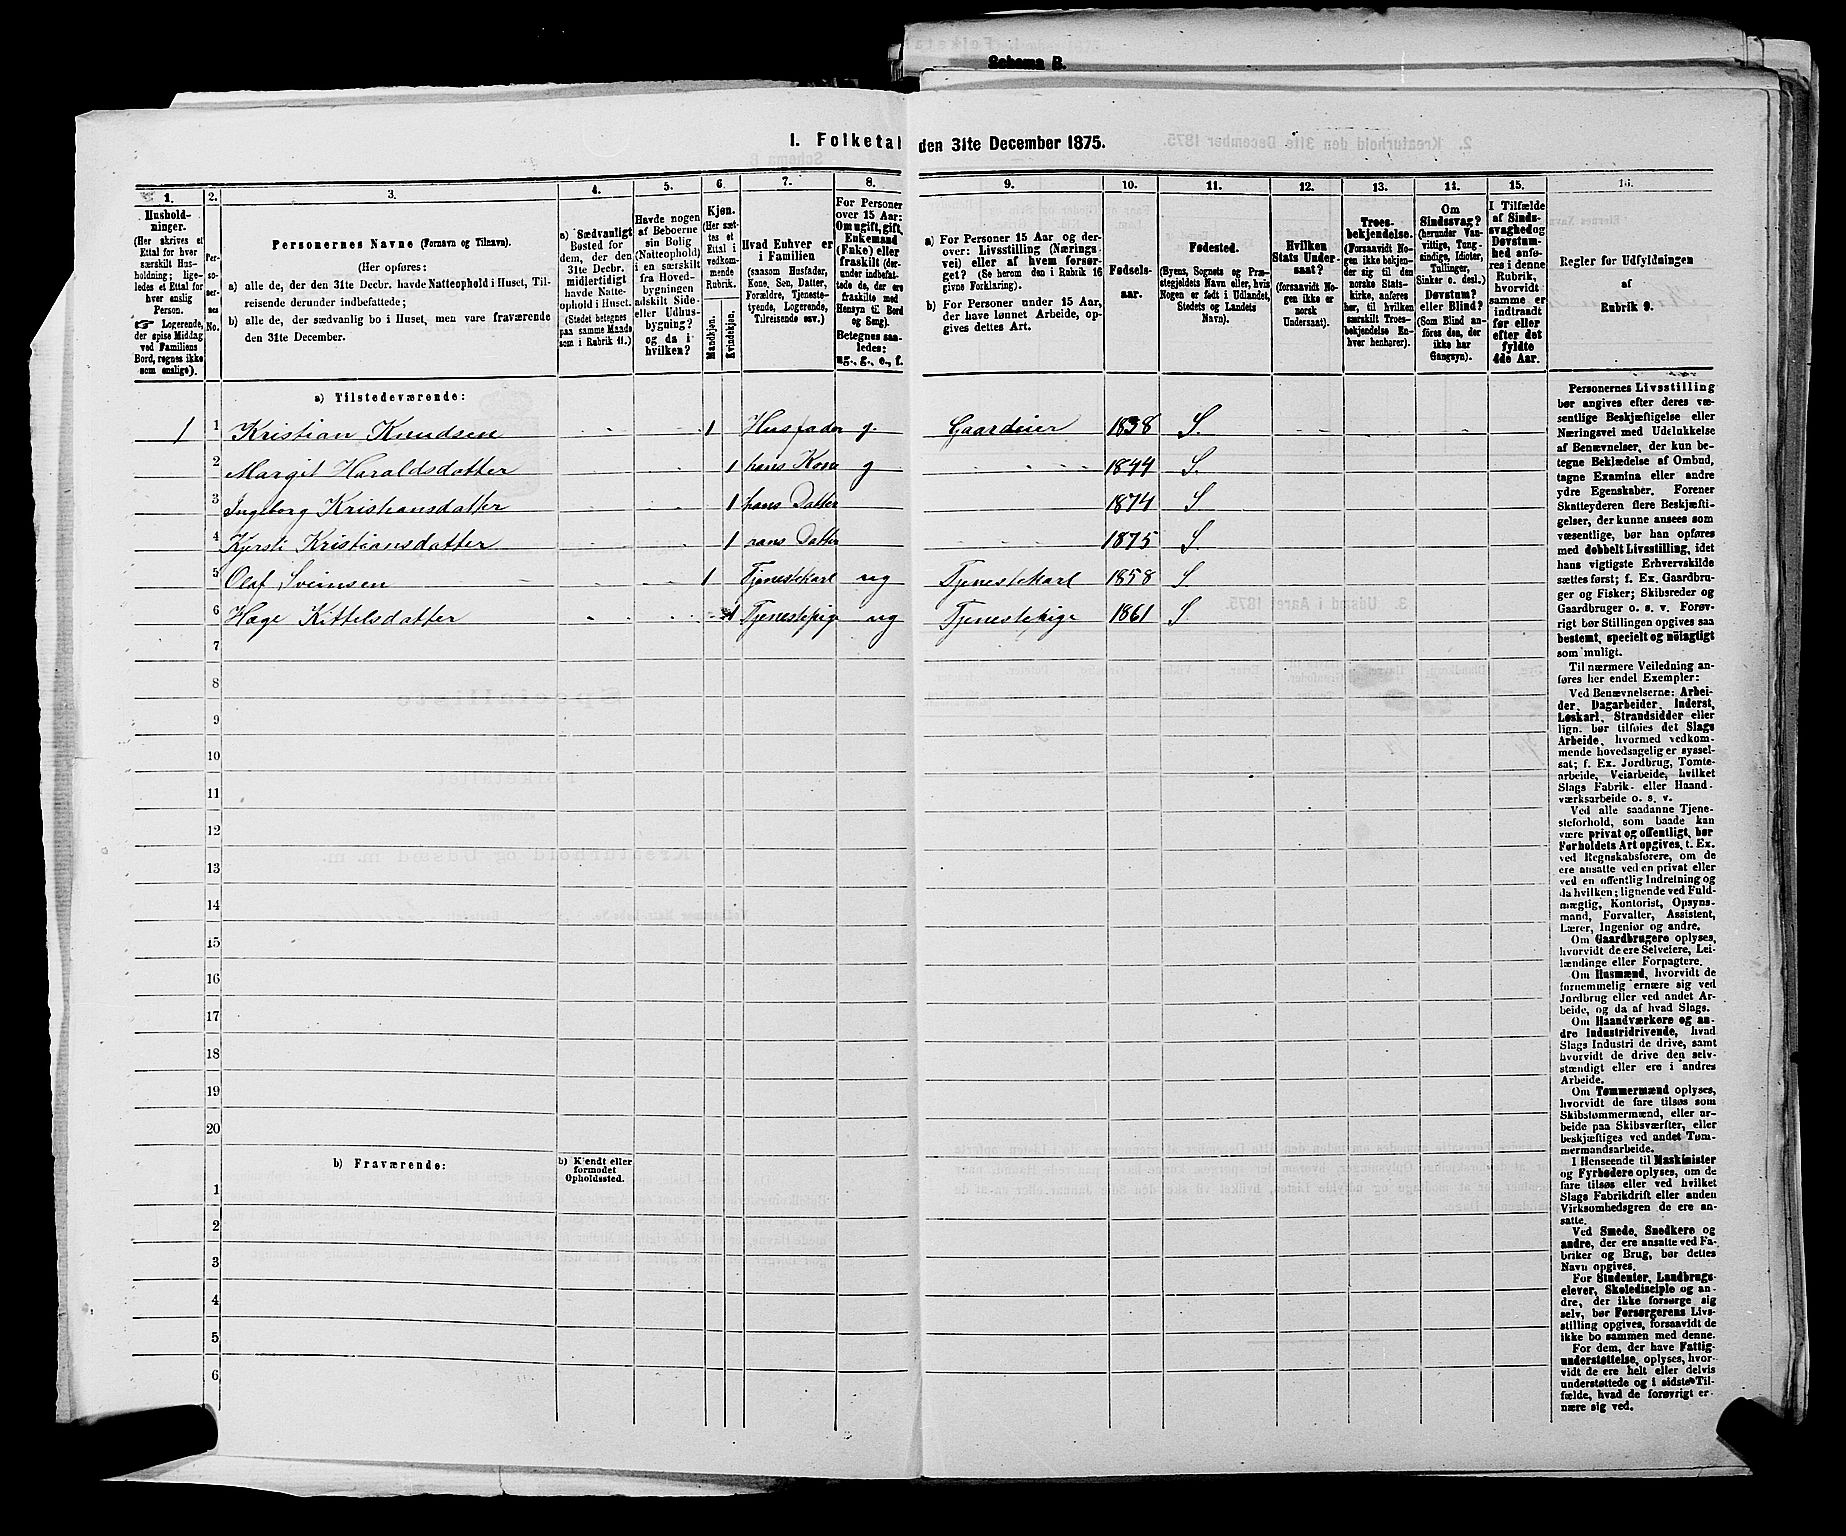 Schema B.
I. Folketal den 31te December 1875.
1. 2. 3. 4. 5. 6. 7. 8. 9. 10. 11. 12. 13. 14. 15. 16.
Husholdninger.
(Her skrives et
Ettal for hver
særskilt Husholdning;
ligeledes et Ettal for
hver enslig
Person.
☞ Logerende,
der spise Middag
ved Familiens
Bord, regnes ikke
som enslige).
Personernes No.
Personernes Navne (Fornavn og Tilnavn).
(Her opføres:
a) alle de, der den 31te Decbr. havde Natteophold i Huset, Tilreisende derunder indbefattede;
b) alle de, der sædvanlig bo i Huset, men vare fraværende
den 31te December.
a) Sædvanligt
Bosted for
dem, der den
31te Decbr.
midlertidigt
havde Natteophold i Huset.
(Stedet betegnes
paa samme Maade
som i Rubrik 11.)
Havde nogen
af Beboerne
sin Bolig
(Natteophold)
i en særskilt
fra Hovedbygningen
adskilt Side-
eller Udhusbygning?
og da i
hvilken?
Kjøn.
(Her sættes et
Ettal i
vedkommende
Rubrik.
Mandkjøn.
Kvindekjøn.
Hvad Enhver er
i Familien
(saasom Husfader,
Kone, Søn, Datter,
Forældre, Tjenestetyende, Logerende,
Tilreisende osv.)
For Personer
over 15 Aar:
Om ugift, gift,
Enkemand
(Enke) eller
fraskilt (derunder indbefattede de, der ere
fraskilte med
Hensyn til Bord
og Seng).
Betegnes saaledes:
ug., g., e., f.
a) For Personer 15 Aar og derover: Livsstilling (Næringsvei) eller af hvem forsørget? (Se herom den i Rubrik 16
givne Forklaring).
b) For Personer under 15 Aar,
der have lønnet Arbeide, opgives dettes Art.
Fødselsaar.
Fødested.
(Byens, Sognets og Præstegjeldets Navn eller, hvis
Nogen er født i Udlandet,
Stedets og Landets
Navn).
Hvilken
Stats Undersaat?
(forsaavidt Nogen ikke er
norsk
Undersaat).
Troesbekjendelse.
(Forsaavidt Nogen ikke bekjender sig til den
norske Statskirke, anføres
her, til hvilken
særskilt Troesbekjendelse Enhver henhører).
Om
Sindssvag?
(herunder Vanvittige, Tungsindige, Idioter,
Tullinger,
Sinker o. desl.)
Døvstum?
eller Blind?
(Som Blind anføres den, der
ikke har
Gangsyn).
I Tilfælde
af Sindssvaghed og
Døvstumhed anføres i denne
Rubrik,
hvorvidt
samme er
indtraadt
før eller
efter det
fyldte
4de Aar.
Regler for Udfyldningen
af
Rubrik 9.
a) Tilstedeværende:
1 1 Kristian Knudsen 1 Husfader g. Gaardeier 1838 S.
2 Margit Haraldsdatter 1 hans Kone g 1844 S.
3 Ingeborg Kristiansdatter 1 hans Datter 1874 S
4 Kjersti Kristiansdatter 1 hans Datter 1875 S.
5 Olaf Sveinsen 1 Tjenestekarl ug Tjenestekarl 1858 S
6 Hæge Kittelsdatter 1 Tjenestepige ug Tjenestepige 1861 S
7
8
9
10
11
12
13
14
15
16
17
18
19
20
b) Fraværende: b) Kjendt eller
formodet
Opholdssted.
1
2
3
4
5
6
Personernes Livsstilling
bør angives efter deres væsentlige Beskjæftigelse eller
Næringsvei med Udelukkelse
af Benævnelser, der kun betegne Beklædelse af Ombud,
tagne Examina eller andre
ydre Egenskaber. Forener
Skatteyderen flere Beskjæftigelser, der kunne ansees som
væsentlige, bør han opføres
med dobbelt Livsstilling, idet
hans vigtigste Erhvervskilde
sættes først; f. Ex. Gaardbruger og Fisker; Skibsreder og
Gaardbruger o. s. v. Forøvrigt bør Stillingen opgives saa
bestemt, specielt og nöiagtigt
som muligt.
Til nærmere Veiledning anføres her endel Exempler:
Ved Benævnelserne: Arbeider, Dagarbeider, Inderst,
Løskarl, Strandsidder eller
lign. bør tilføies det Slags
Arbeide, hvormed vedkommende hovedsagelig er sysselsat; f. Ex. Jordbrug, Tomtearbeide, Veiarbeide, hvilket
Slags Fabrik- eller Haandværksarbeide o. s. v.
Ved alle saadanne Tjenesteforhold, som baade kan
være privat og offentligt, bør
Forholdets Art opgives, t. Ex.
ved Regnskabsførere, om de
ere ansatte ved en privat eller
ved en offentlig Indretning og
da hvilken; lignende ved Fuldmægtig, Kontorist, Opsynsmand, Forvalter, Assistent,
Lærer, Ingeniør og andre.
Om Gaardbrugere oplyses,
hvorvidt de ere Selveiere, Leilændinge eller Forpagtere.
Om Husmænd, hvorvidt de
fornemmelig ernære sig ved
Jordbrug eller ved andet Arbeide, og da af hvad Slags.
Om Haandværkere og andre Industridrivende, hvad
Slags Industri de drive, samt
hvorvidt de drive den selvstændigt eller ere i andres
Arbeide.
Om Tømmermænd oplyses,
hvorvidt de fare tilsøs som
Skibstømmermænd, eller arbeide paa Skibsværfter, eller
beskjæftiges ved andet Tømmermandsarbeide.
I Henseende til Maskinister
og Fyrbødere oplyses, om de
fare tilsøs eller ved hvilket
Slags Fabrikdrift eller anden
Virksomhedsgren de ere ansatte.
Ved Smede, Snedkere og
andre, der ere ansatte ved Fabriker og Brug, bør dettes
Navn opgives.
For Studenter, Landbrugselever, Skoledisciple og andre, der ikke forsørge sig
selv, bør Forsørgerens Livsstilling opgives, forsaavidt de
ikke bo sammen med denne.
For dem, der have Fattigunderstøttelse, oplyses, hvorvidt de ere helt eller delvis
understøttede og i sidste Tilfælde, hvad de forøvrigt ernære sig ved.